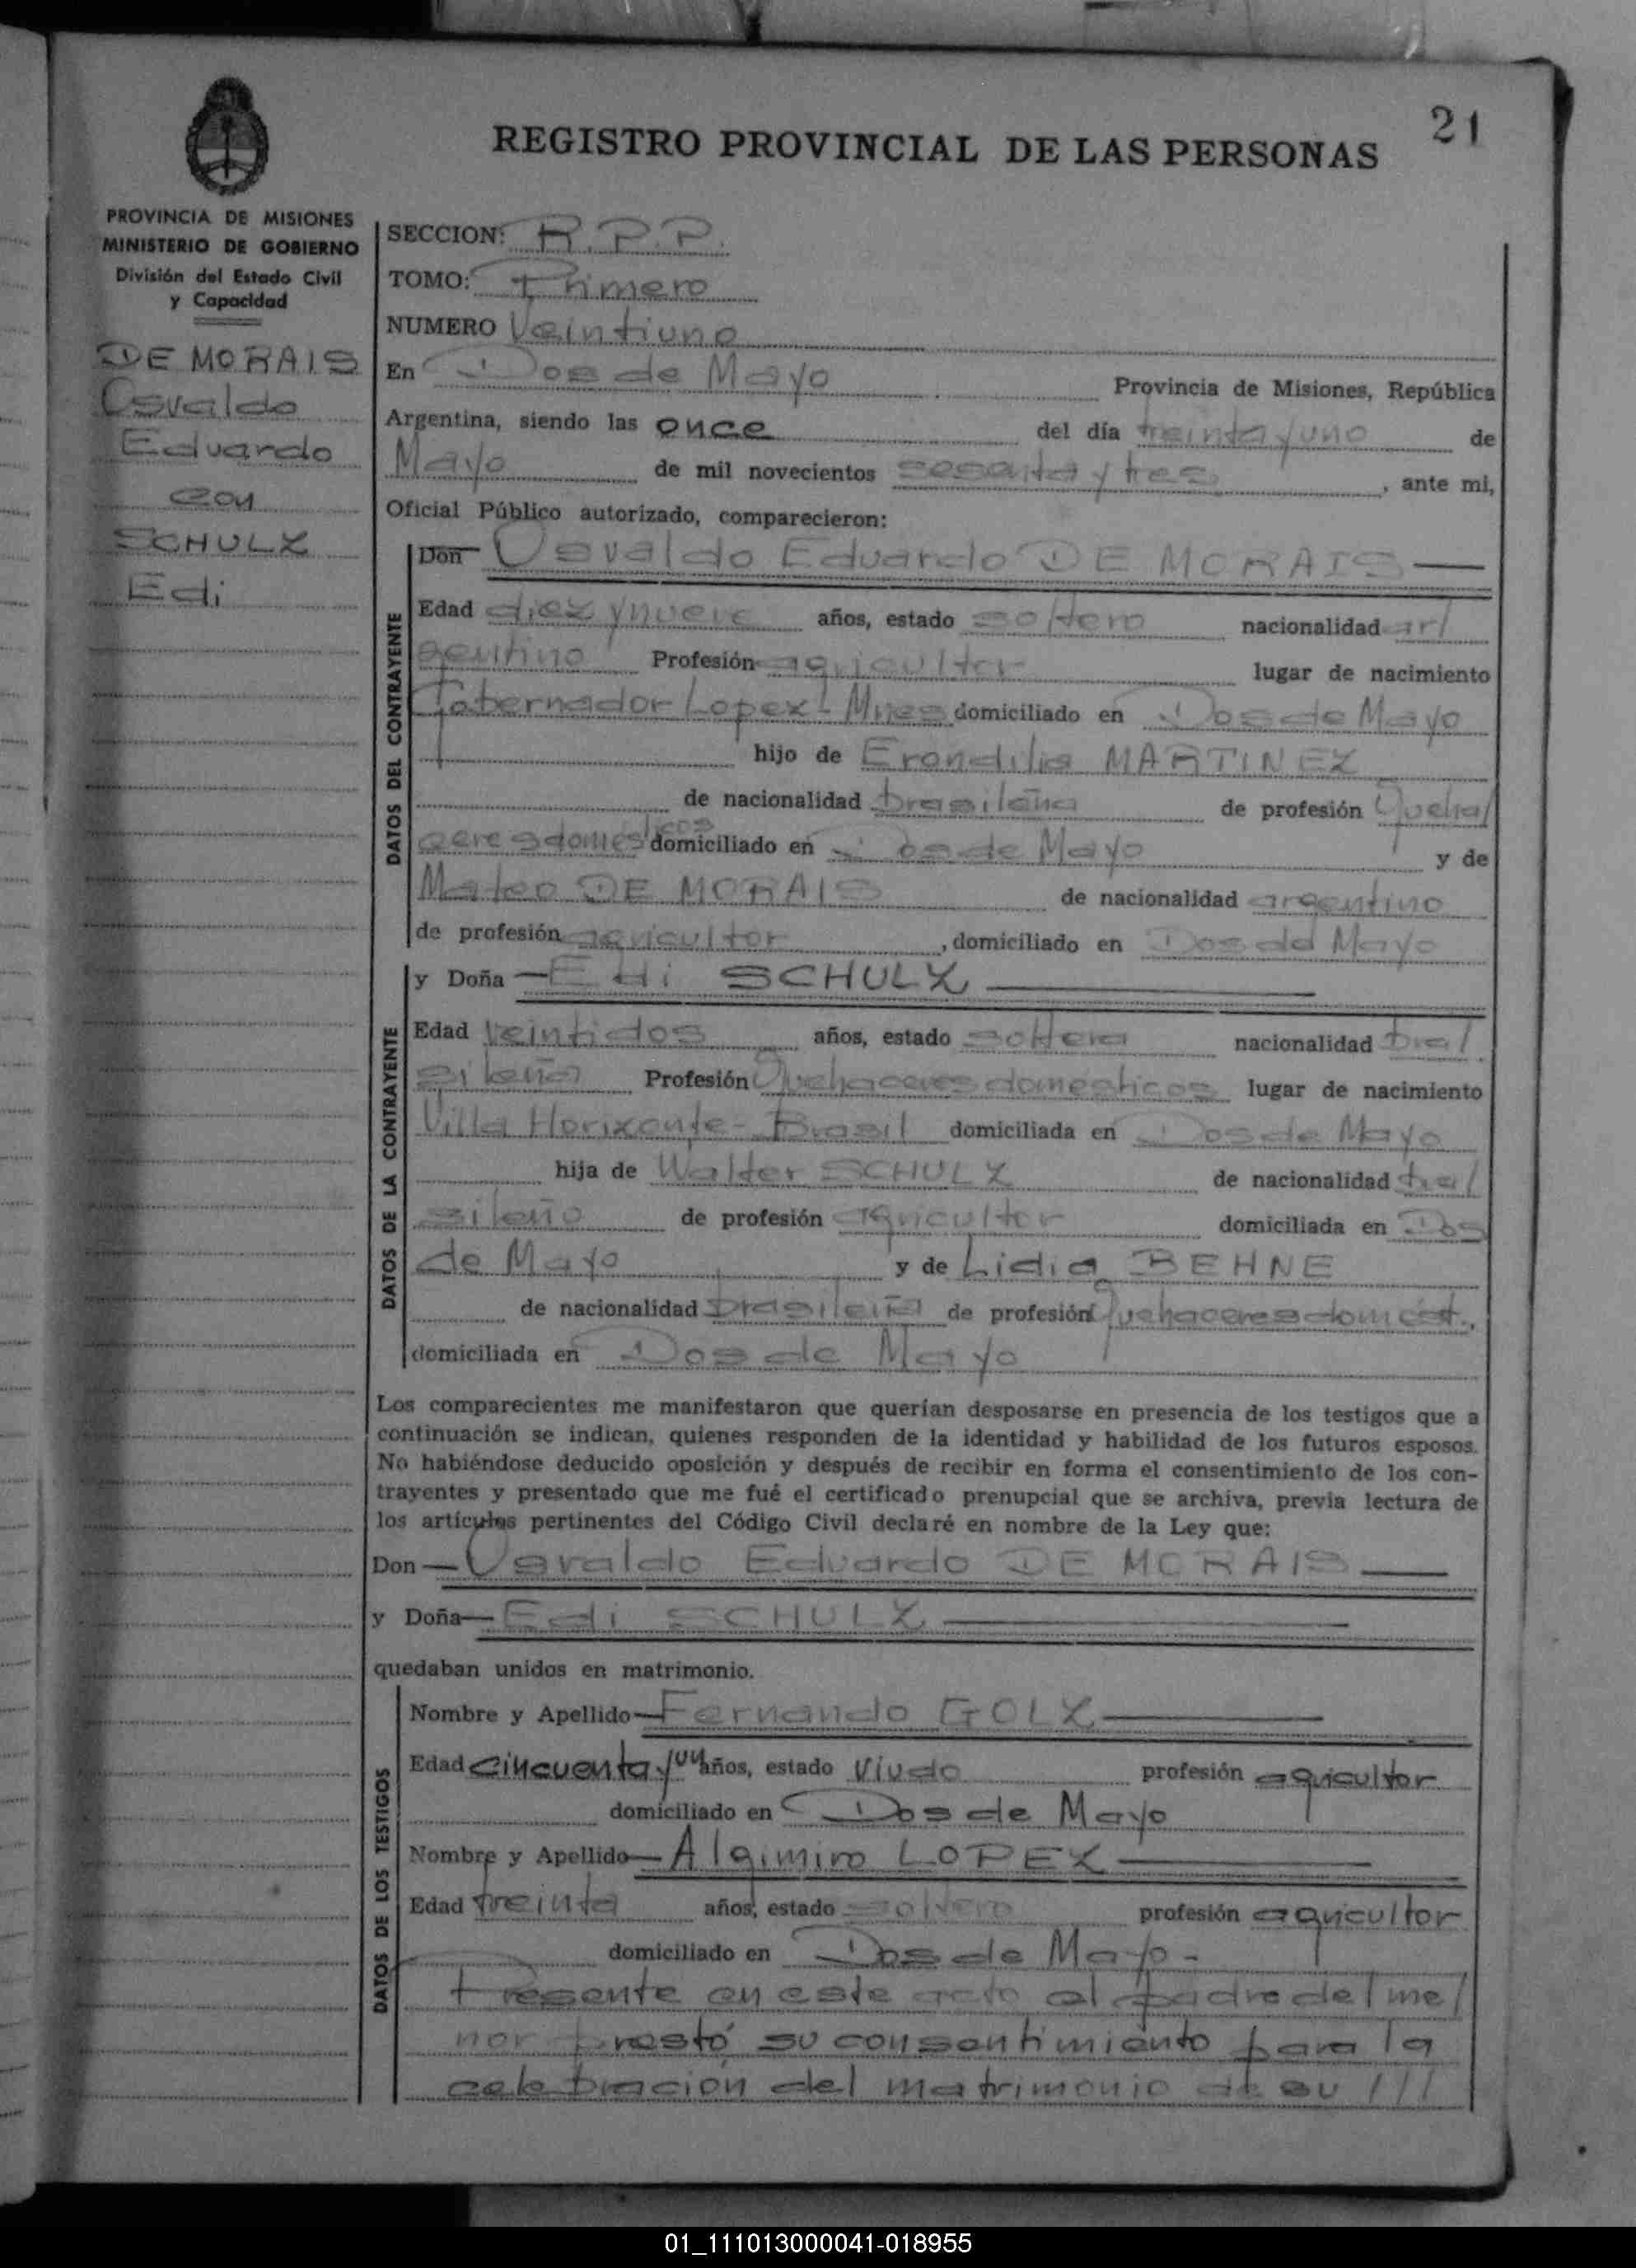 21
REGISTRO PROVINCIAL DE LAS PERSONAS
PROVINCIA DE MISIONES
MINISTERIO DE GOBIERNO
División del Estado Civil
y Capacidad
DE MORAIS
Osvaldo
Eduardo
con
SCHULZ
Edi
SECCION: R.P.P.
TOMO: Primero
NUMERO Veintiuno
En Dos de Mayo Provincia de Misiones, República
Argentina, siendo las once del día treinta y uno de
Mayo de mil novecientos sesenta y tres, ante mi,
Oficial Público autorizado, comparecieron:
DATOS DEL CONTRAYENTE
Don Osvaldo Eduardo DE MORAIS
Edad diez y nueve años, estado soltero nacionalidad ar/
gentino Profesión agricultor lugar de nacimiento
Gobernador Lopez - Mnes domiciliado en Dos de Mayo
hijo de Erondilia MARTINEZ
de nacionalidad brasileña de profesión Queha/
ceres domesticos domiciliado en Dos de Mayo y de
Mateo DE MORAIS de nacionalidad argentino
de profesión agricultor, domiciliado en Dos de Mayo
DATOS DE LA CONTRAYENTE
y Doña Edi SCHULZ
Edad veintidos años, estado soltera nacionalidad bra/
sileña Profesión Quehaceres domesticos lugar de nacimiento
Villa Horizonte - Brasil domiciliada en Dos de Mayo
hija de Walter SCHULZ de nacionalidad bra/
sileño de profesión agricultor domiciliada en Dos
de Mayo y de Lidia BEHNE
de nacionalidad brasileña de profesión Quehaceres domést.,
domiciliada en Dos de Mayo
Los comparecientes me manifestaron que querían desposarse en presencia de los testigos que a
continuación se indican, quienes responden de la identidad y habilidad de los futuros esposos.
No habiéndose deducido oposición y después de recibir en forma el consentimiento de los con-
trayentes y presentado que me fué el certificado prenupcial que se archiva, previa lectura de
los artículos pertinentes del Código Civil declaré en nombre de la Ley que:
Don Osvaldo Eduardo DE MORAIS
y Doña Edi SCHULZ
quedaban unidos en matrimonio.
DATOS DE LOS TESTIGOS
Nombre y Apellido Fernando GOLZ
Edad cincuenta y un años, estado viudo profesión agricultor
domiciliado en Dos de Mayo
Nombre y Apellido Algimiro LOPEZ
Edad treinta años, estado soltero profesión agricultor
domiciliado en Dos de Mayo -
Presente en este acto el padre del me/
nor prestó su consentimiento para la
celebracion del matrimonio de su ///
01_111013000041-018955